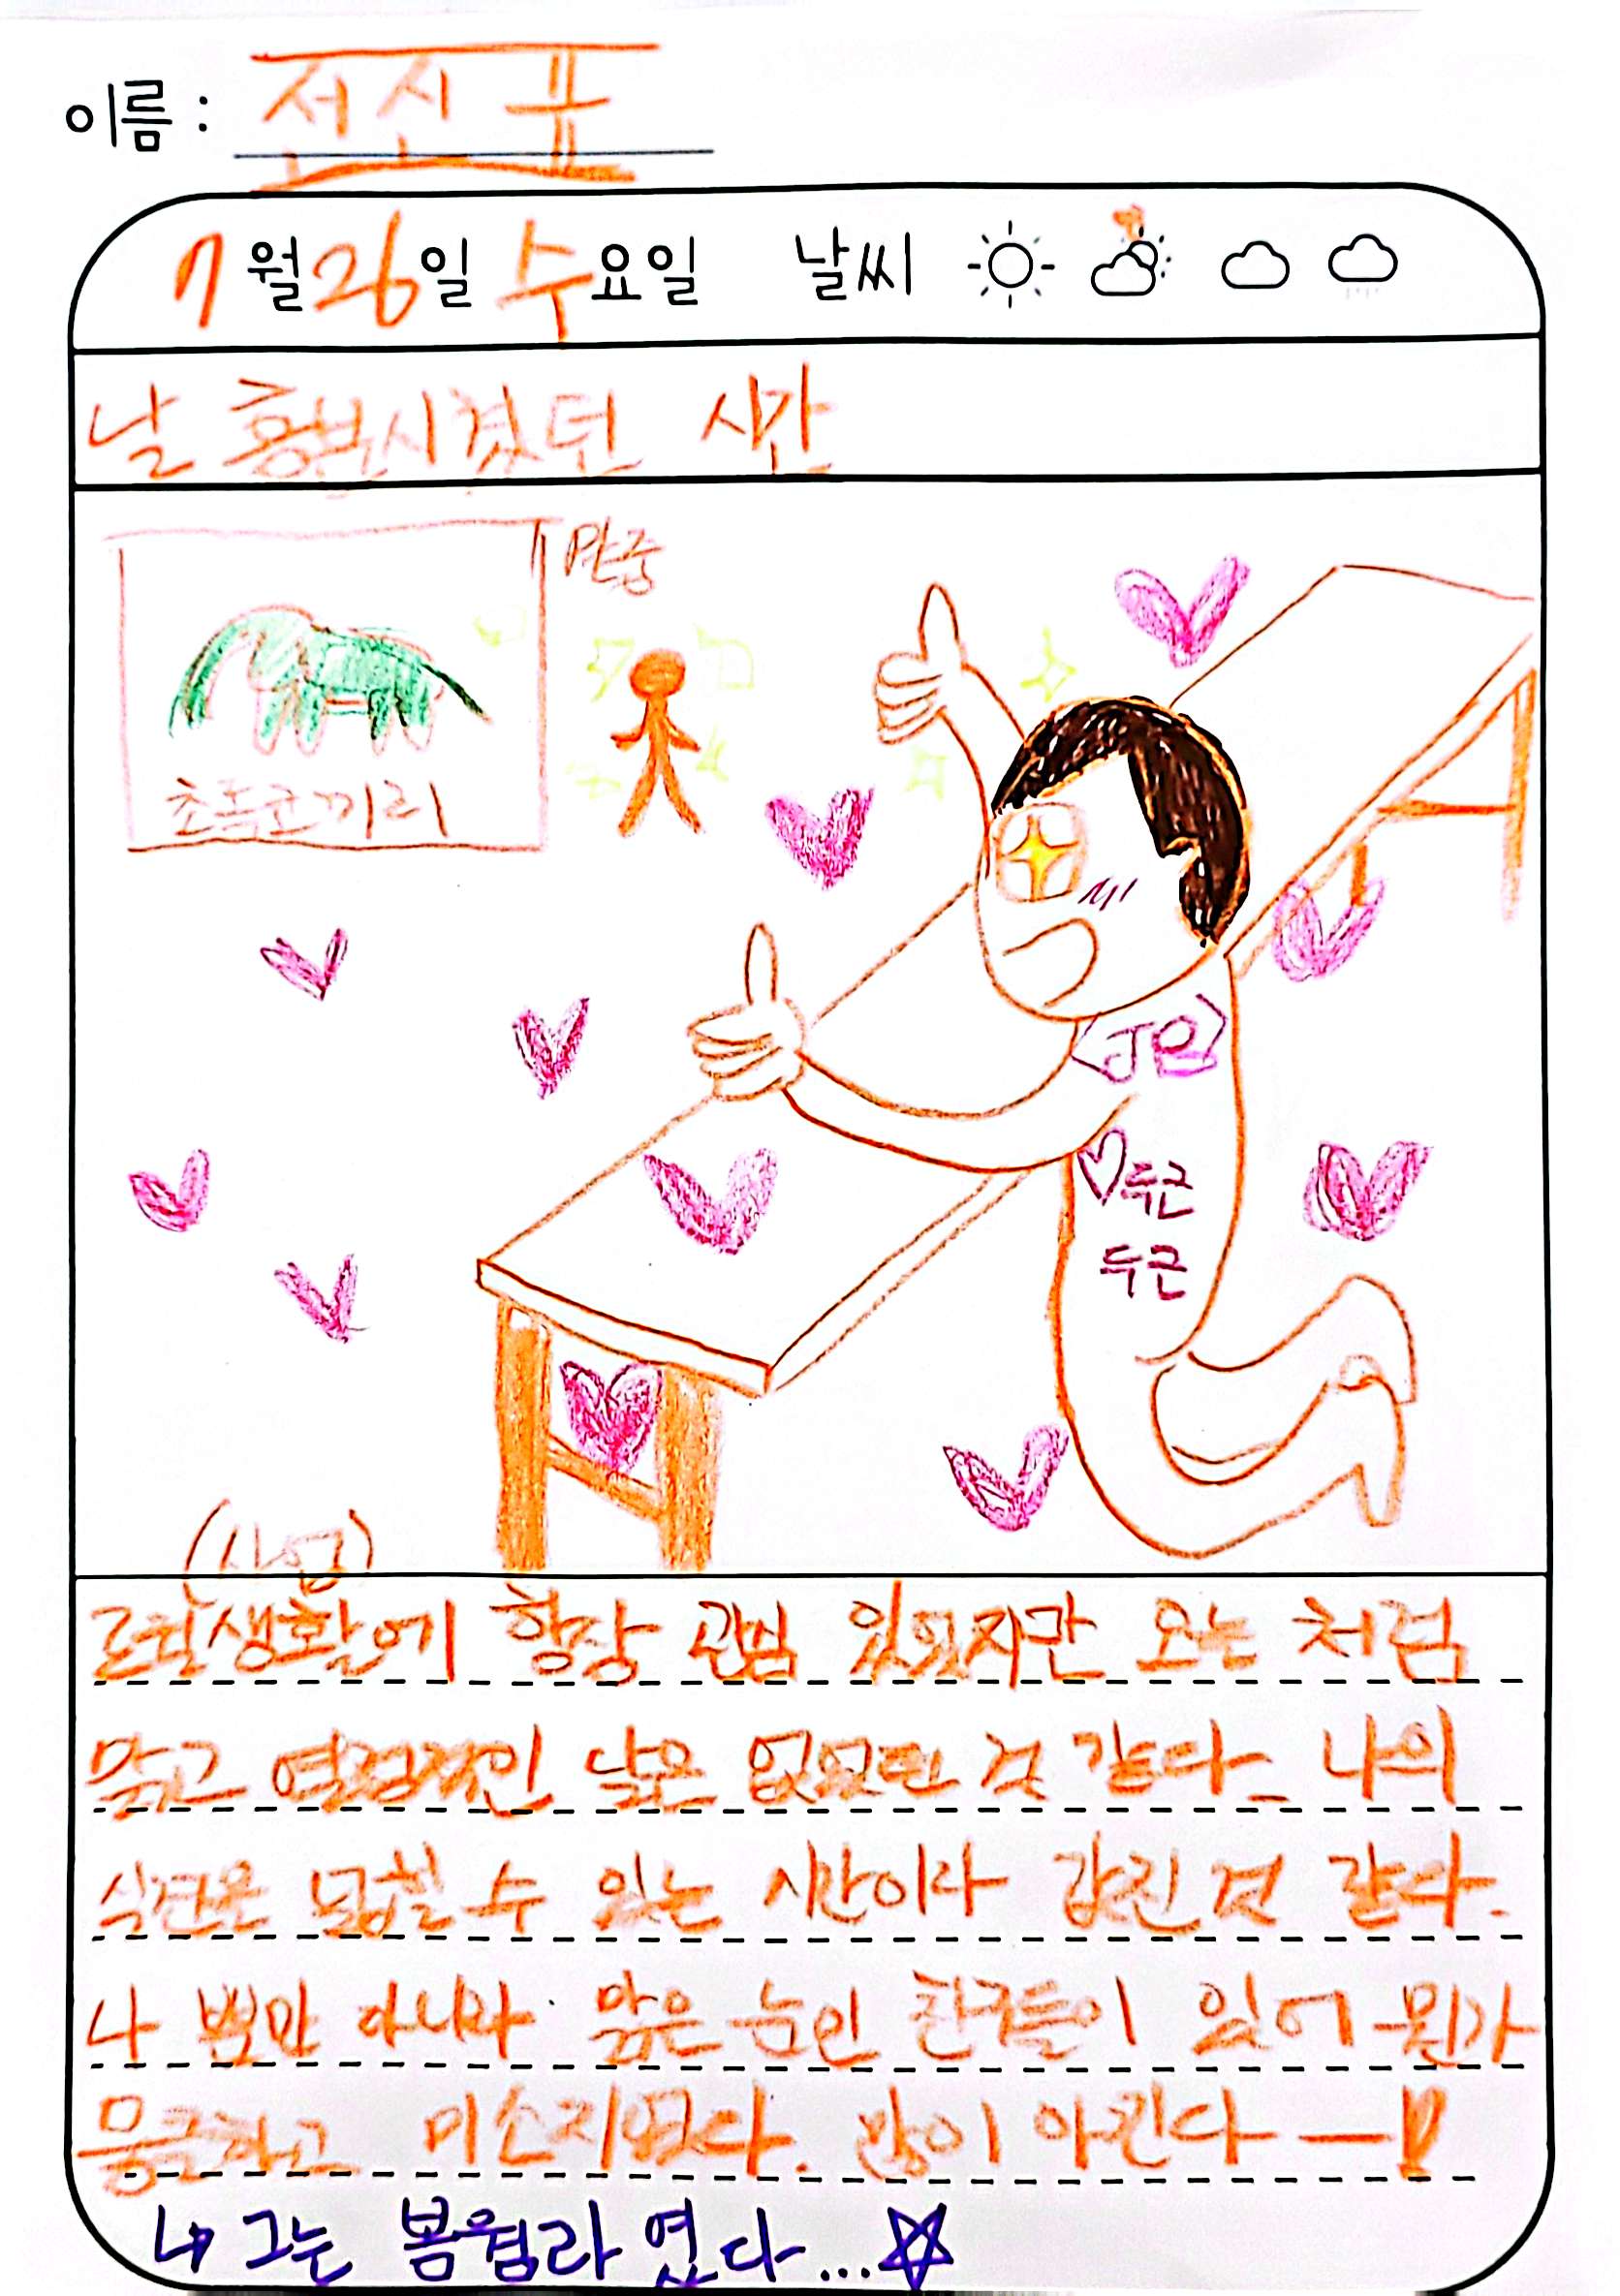 이름 :
7월 26일 수요일 날씨
날 흥분시켰던 시간
만중
초록코끼리
두근
두근
(사업)
로컬생활에 항상 관심 있었지만 오늘 처럼
맑고 열정적인 날은 없었던 것 같다. 나의
식견은 넓힐 수 있는 시간이라 값진 것 같다.
나 뿐만 아니라 맑은 눈인 친구들이 있어 뭔가
뭉클하고 미소지었다. 많이 아낀다 —!!
↳ 그는 봄웜라 였다...☆